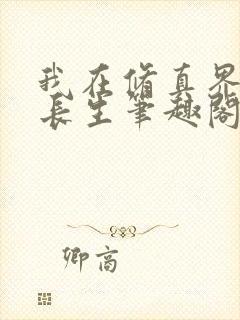 我在修真界
长生笔趣阁
卿高